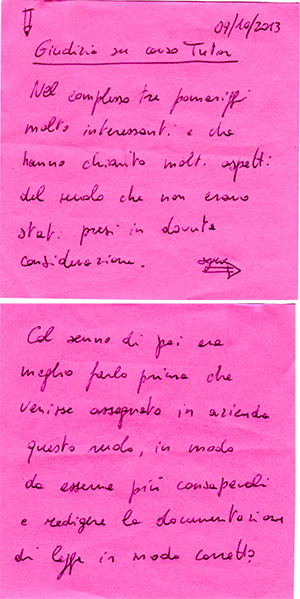 09/10/2013
Giudizio su corso Tutor
Nel complesso tre pomeriggi
molto interessanti e che
hanno chiarito molti aspetti
del ruolo che non erano
stati presi in dovuta
considerazione. segue
Col senno di poi era
meglio farlo prima che
venisse assegnato in azienda
questo ruolo, in modo
da esserne più consapevoli
e redigere la documentazione
di legge in modo corretto